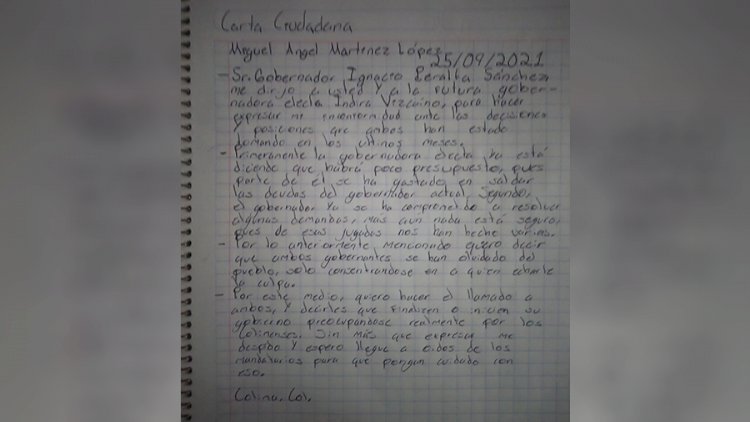 Carta Ciudadana
Miguel Angel Martinez López
25/09/2021
- Sr. Gobernador Ignacio Peralta Sánchez,
me dirijo a usted y a la futura gober-
nadora electa Indira Vizcaíno, para hacer
expresar mi inconformidad ante las decisiones
y posiciones que ambos han estado
tomando en los ultimos meses.
- Primeramente la gobernadora electa ya está
diciendo que habrá poco presupuesto, pues
parte de el se ha gastado en saldar
las deudas del gobernador actual. Segundo,
el gobernador ya se ha comprometido a resolver
algunas demandas, mas aun nada está seguro,
pues de esas jugadas nos han hecho varias.
- Por lo anteriormente mencionado quiero decir
que ambos gobernantes se han olvidado del
pueblo, solo consentrandose en a quien echarle
la culpa.
- Por este medio, quiero hacer el llamado a
ambos, y decirles que finalizen o inicien su
gobierno preocupandose realmente por los
Colimenses. Sin más que expresar me
despido y espero llegue a oidos de los
mandatarios para que pongan cuidado con
eso.
Colima, Col.